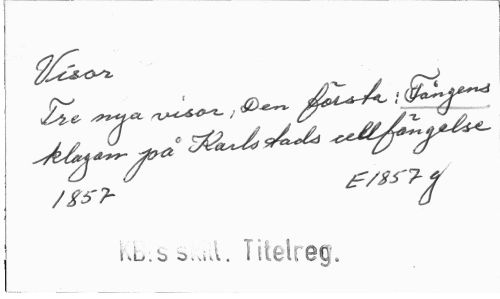 Visor
Tre nya visor, Den första: Fångens
klagan på Karlstads cellfängelse
1857 E1857g
KB:s skill. Titelreg.